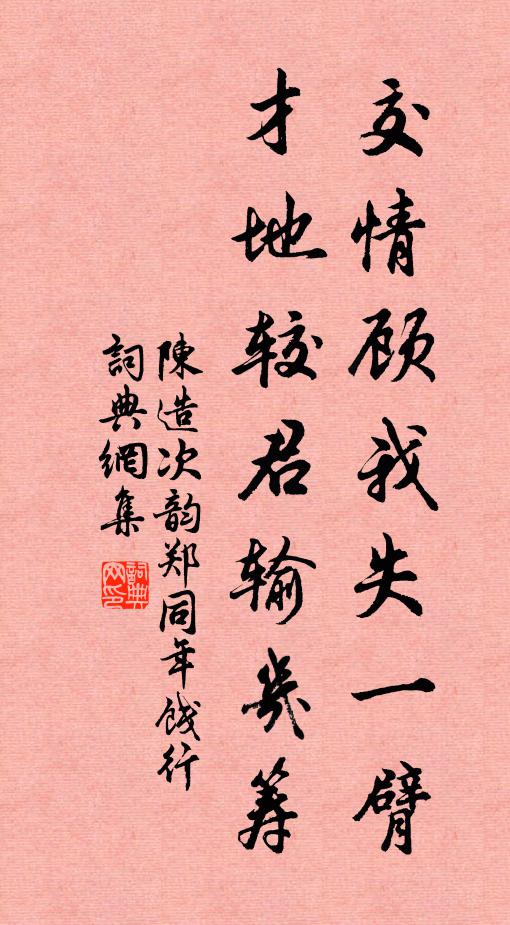 交情顾我失一臂
才地较君输几筹
陳造次韵郑同年饯行
詞典網集
詞典网印